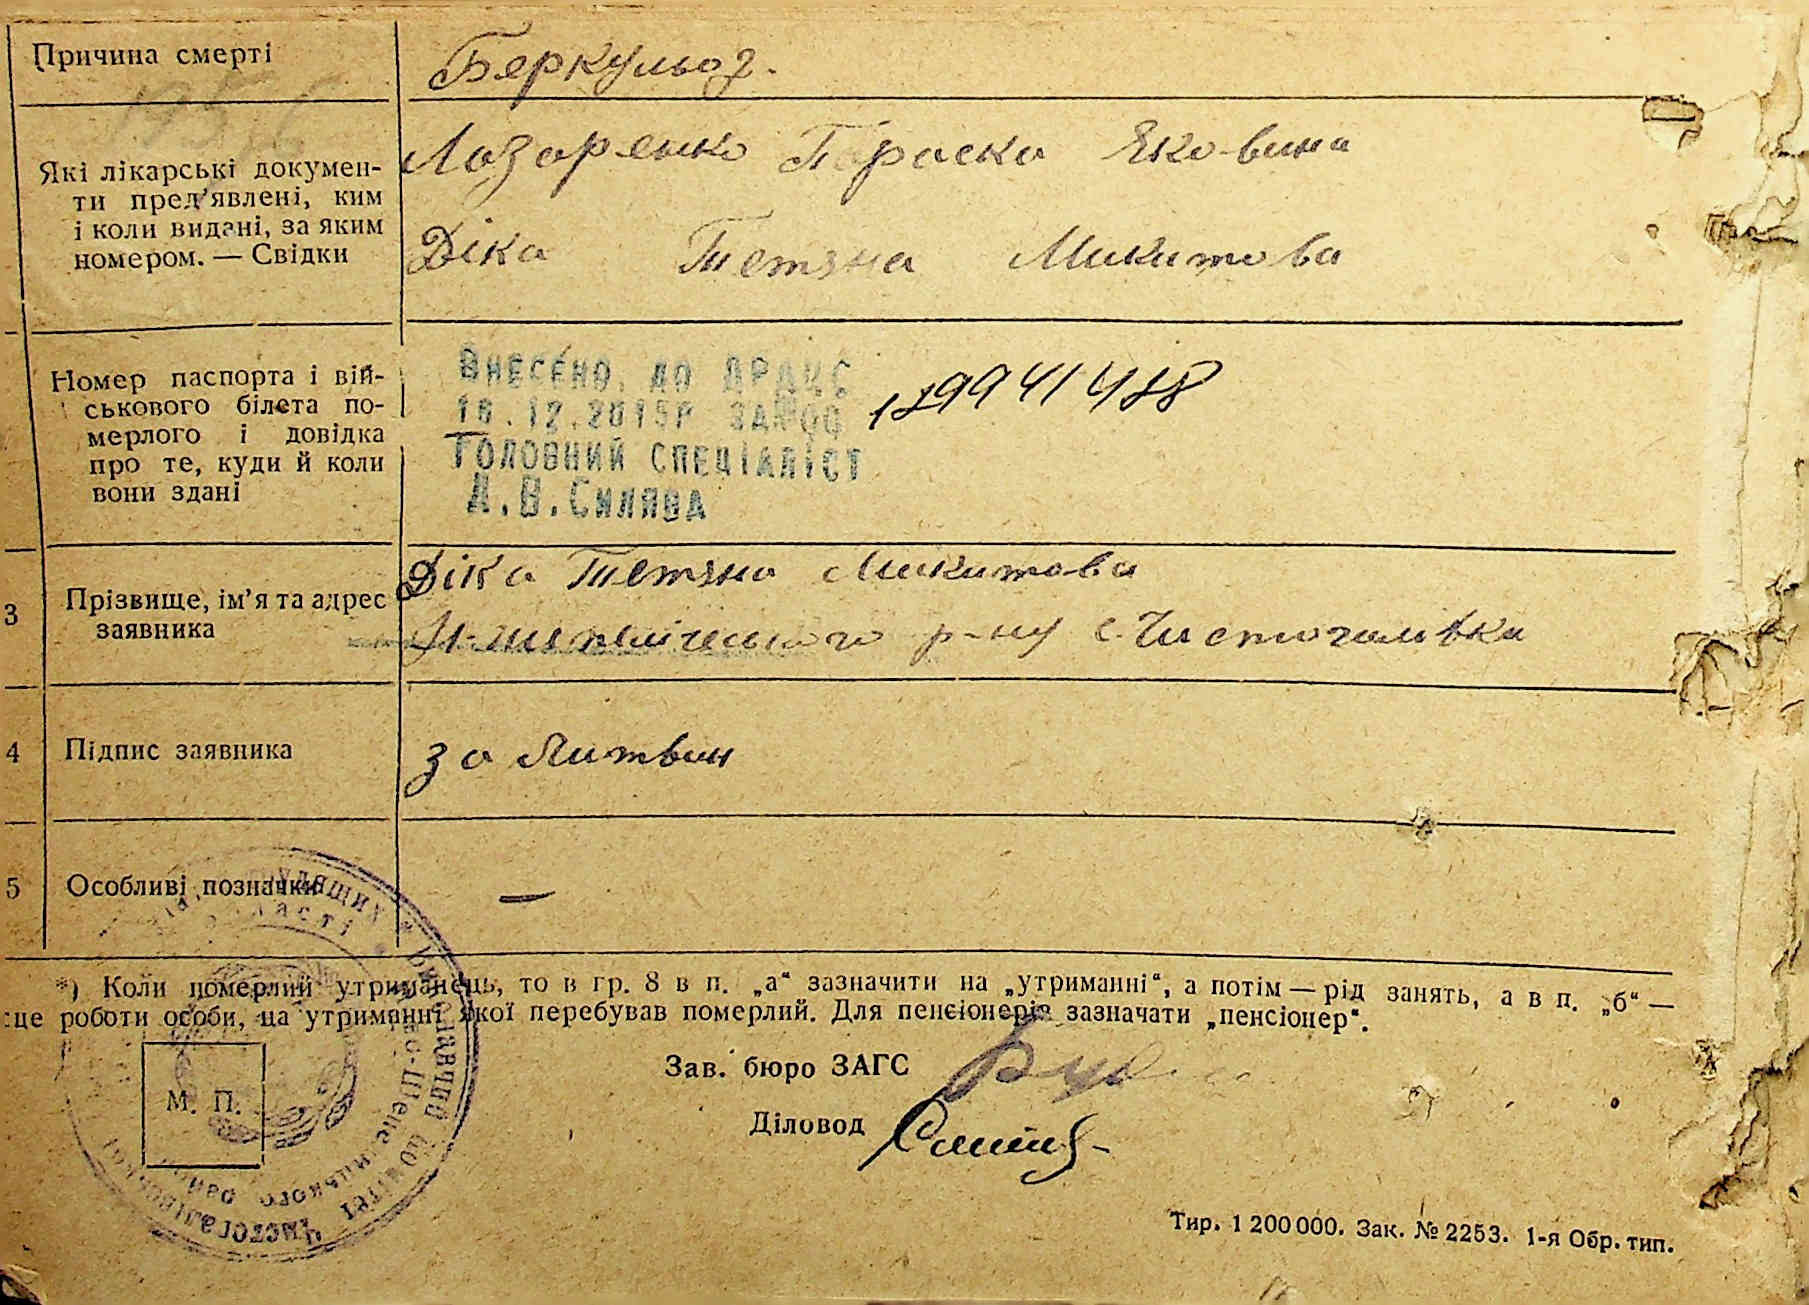 Причина смерті
Беркульоз.
Які лікарські докумен-
ти пред'явлені, ким
і коли видані, за яким
номером. — Свідки
Лозаренко Параска Яковина
Діка Тетяна Микитова
Номер паспорта і вій-
ськового білета по-
мерлого і довідка
про те, куди й коли
вони здані
ВНЕСЕНО ДО ДРАЦС
18.12.2015Р ЗА №00
ГОЛОВНИЙ СПЕЦІАЛІСТ
А.В.Силява
3
Прізвище, ім'я та адрес
заявника
Діка Тетяна Микитова
р-ну с. Чистогалівка
4
Підпис заявника
за Литвин
5
Особливі позначки
—
*) Коли померлий утриманець, то в гр. 8 в п. „а“ зазначити на „утриманні“, а потім — рід занять, а в п. „б“ —
це роботи особи, на утриманні якої перебував померлий. Для пенсіонерів зазначати „пенсіонер“.
Зав. бюро ЗАГС
М. П.
Діловод
Тир. 1 200 000. Зак. № 2253. 1-я Обр. тип.